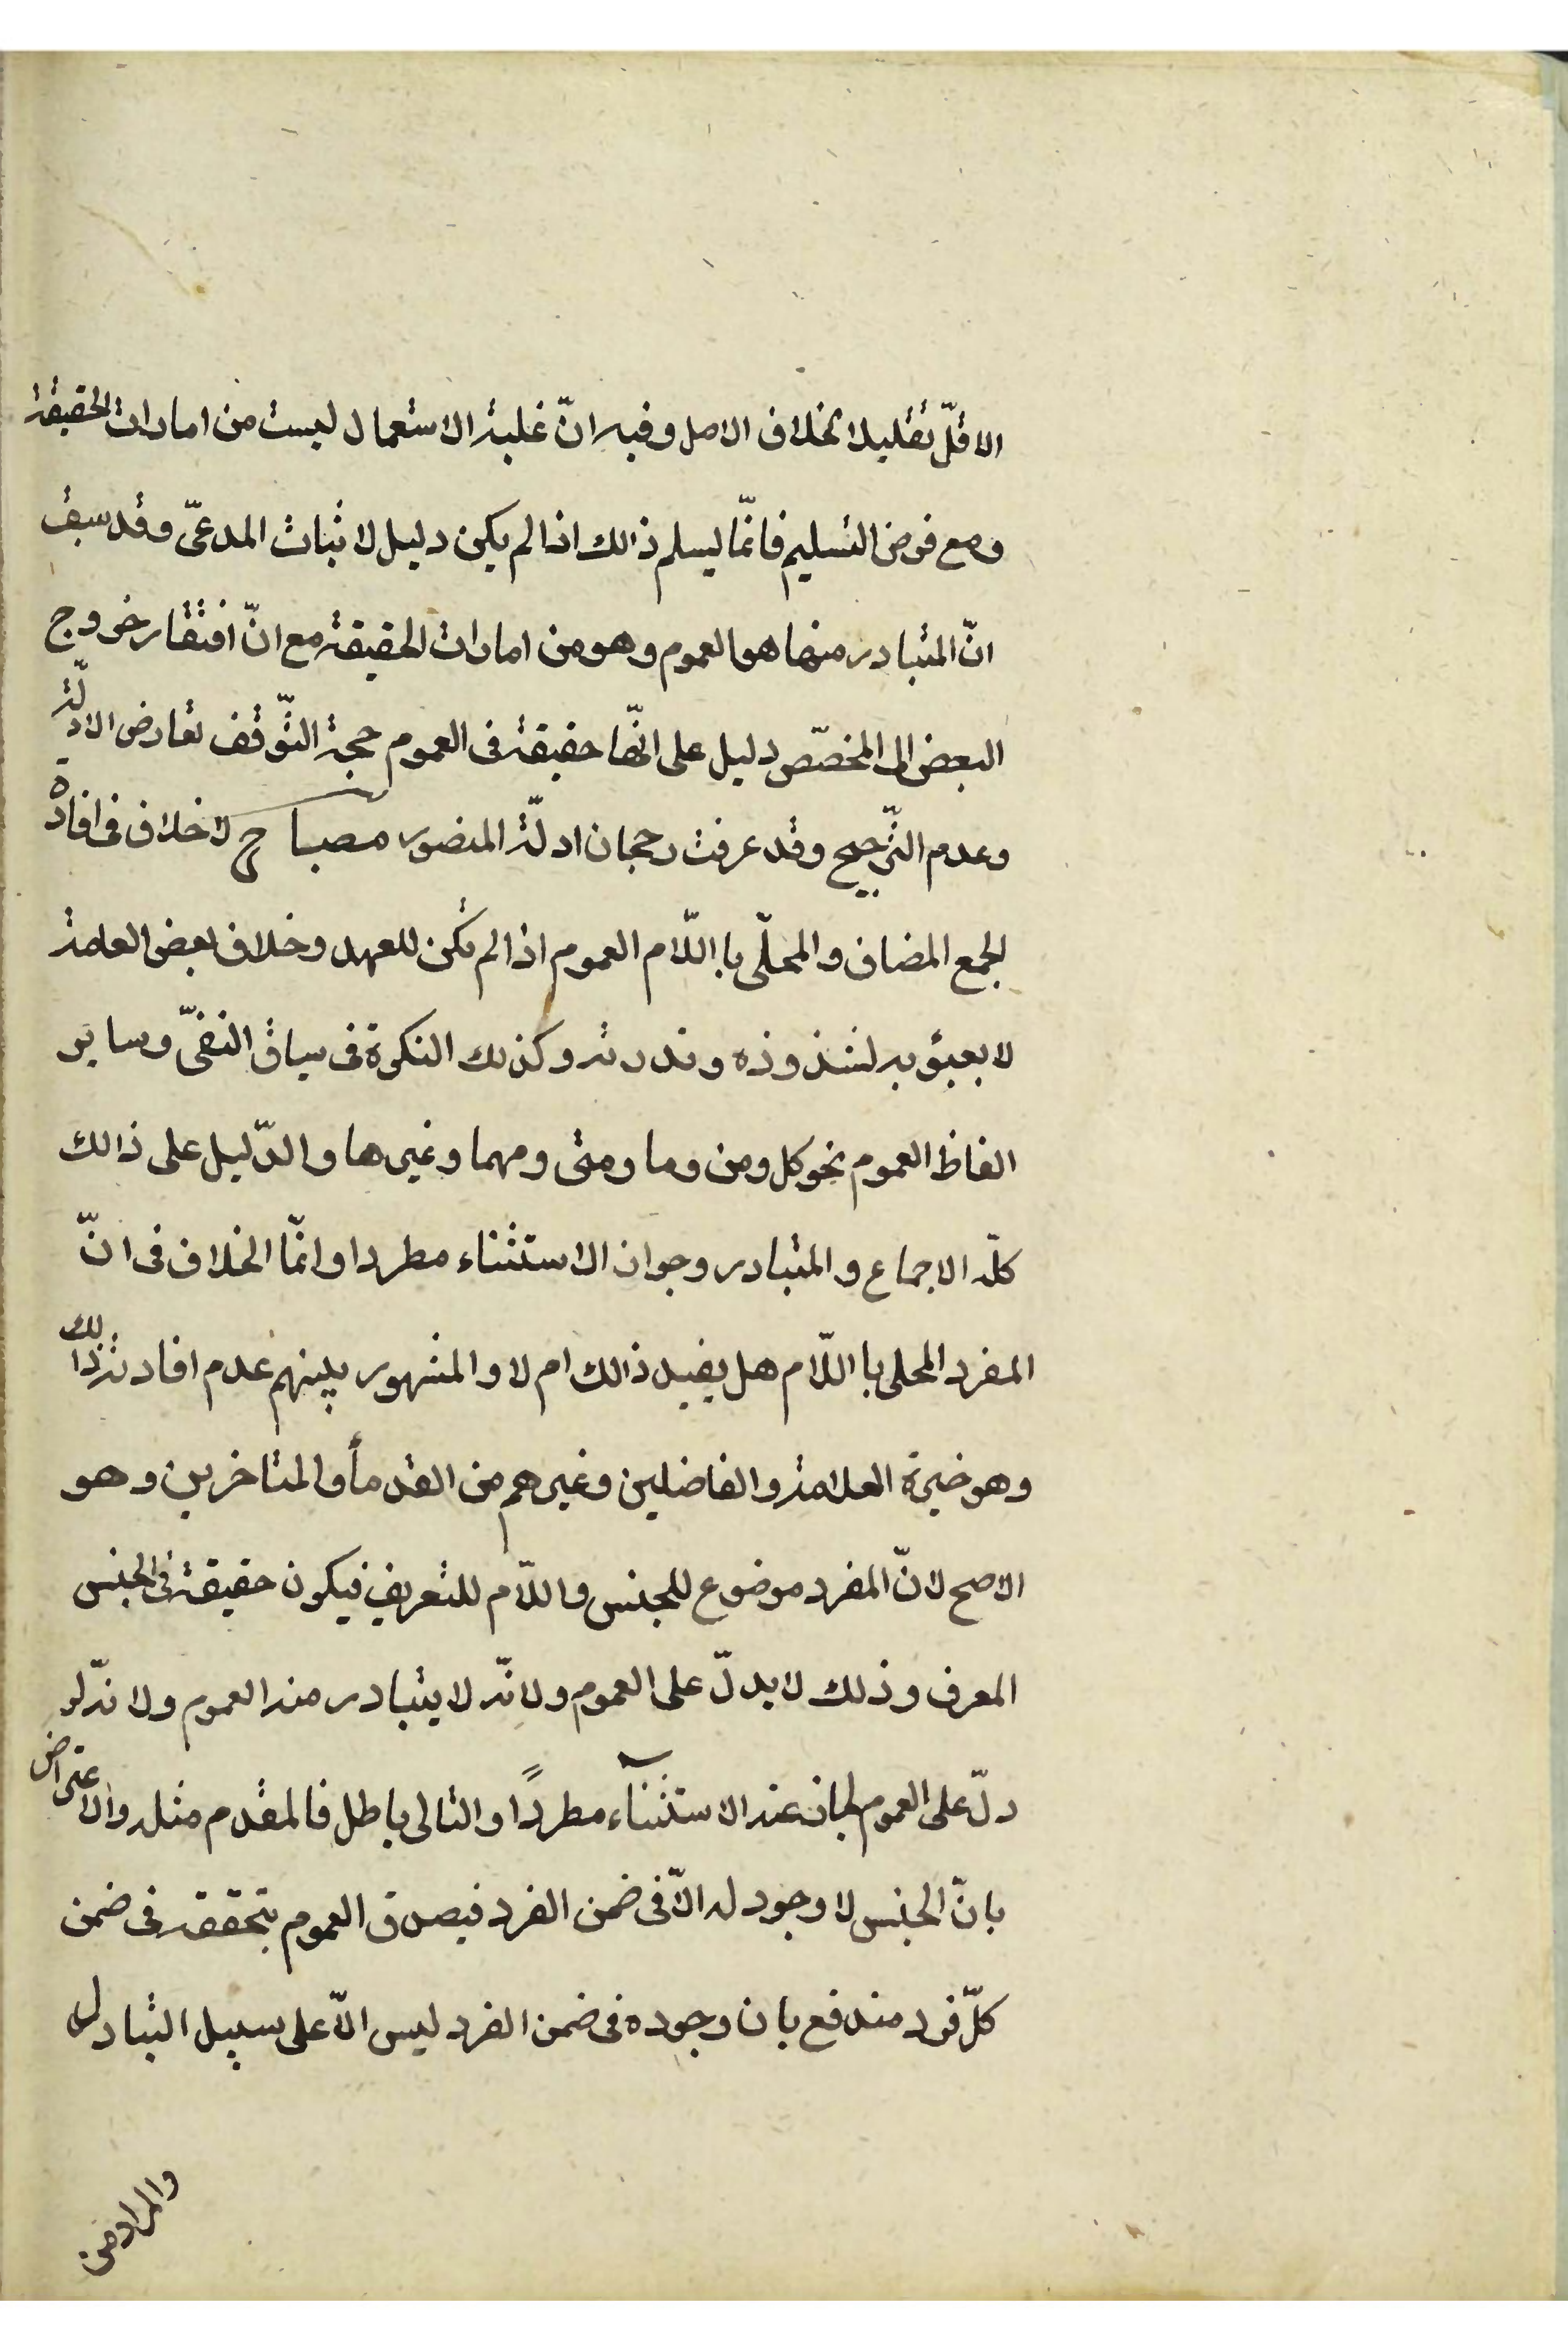 الاقلّ تقليلا لخلاف الاصل وفيه انّ غلبة الاستعمال ليست من امارات الحقيقة
ومع فرض التسليم فانّما يسلم ذالك اذا لم يكن دليل لاثبات المدعّى وقد سبق
انّ المتبادر منها هو العموم وهو من امارات الحقيقة مع انّ افتقار خروج
البعض الى المخصّص دليل على انّها حقيقة فى العموم حجة التّوقف تعارض الادلّة
وعدم التّرجيح وقد عرفت رجحان ادلّة المنصور مصباح لا خلاف فى افادة
الجمع المضاف والمحلّى باللّام العموم اذا لم تكن للعهد وخلاف بعض العامة
لا يعبؤ به لشذوذه وندرته وكذلك النكرة فى سياق النفىّ وساير
الفاظ العموم نحو كل ومن وما ومتى ومهما وغيرها والدّليل على ذالك
كلّه الاجماع والمتبادر وجواز الاستثناء مطردا وانّما الخلاف فى انّ
المفرد المحلى باللّام هل يفيد ذالك ام لا والمشهور بينهم عدم افادته ذالك
وهو خيرة العلامة والفاضلين وغيرهم من القدمأ والمتاخرين وهو
الاصح لانّ المفرد موضوع للجنس واللّام للتعريف فيكون حقيقة فى الجنس
المعرف وذلك لا يدلّ على العموم ولانّه لا يتبادر منه العموم ولانّه لو
دلّ على العموم لجاز عنه الاستثناء مطردًا والتالى باطل فالمقدم مثله والاعتراض
بانّ الجنس لا وجود له الّا فى ضمن الفرد فيصدق العموم بتحققه فى ضمن
كلّ فرد مندفع بان وجوده فى ضمن الفرد ليس الّا على سبيل التبادل
والمراد من